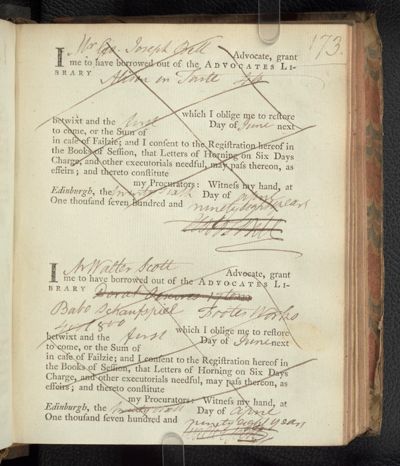 173.
I Mr Geo. Joseph Bell Advocate, grant
me to have borrowed out of the ADVOCATES LI-
BRARY
which I oblige me to restore
betwixt and the first Day of June next
to come, or the Sum of
in case of Failzie; and I consent to the Registration hereof in
the Books of Session, that Letters of Horning on Six Days
Charge, and other executorials needful, may pass thereon, as
effeirs; and thereto constitute
my Procurators: Witness my hand, at
Edinburgh, the Day of
One thousand seven hundred and ninety eight years
I Mr Walter Scott Advocate, grant
me to have borrowed out of the ADVOCATES LI-
BRARY
Babo Schauspiel Works
800 which I oblige me to restore
betwixt and the first Day of June next
to come, or the Sum of
in case of Failzie; and I consent to the Registration hereof in
the Books of Session, that Letters of Horning on Six Days
Charge, and other executorials needful, may pass thereon, as
effeirs; and thereto constitute
my Procurators: Witness my hand, at
Edinburgh, the Day of April
One thousand seven hundred and ninety eight years